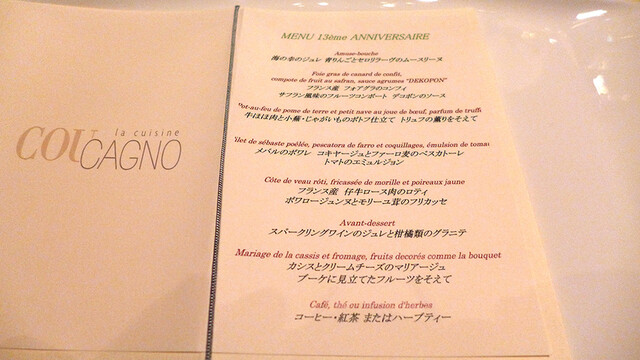 la cuisine
COU
CAGNO
MENU 13ème ANNIVERSAIRE
Amuse-bouche
海の幸のジュレ 青りんごとセロリラーヴのムースリーヌ
Foie gras de canard de confit,
compote de fruit au safran, sauce agrumes "DEKOPON"
フランス産 フォアグラのコンフィ
サフラン風味のフルーツコンポート デコポンのソース
ot-au-feu de pome de terre et petit nave au joue de bœuf, parfum de truff
牛ほほ肉と小蕪・じゃがいものポトフ仕立て トリュフの薫りをそえて
ilet de sébaste poélée, pescatora de farro et coquillages, émulsion de tomat
メバルのポワレ コキヤージュとファーロ麦のペスカトーレ
トマトのエミュルジョン
Côte de veau rôti, fricassée de morille et poireaux jaune
フランス産 仔牛ロース肉のロティ
ポワロージュンヌとモリーユ茸のフリカッセ
Avant-dessert
スパークリングワインのジュレと柑橘類のグラニテ
Mariage de la cassis et fromage, fruits decorés comme la bouquet
カシスとクリームチーズのマリアージュ
ブーケに見立てたフルーツをそえて
Café, thé ou infusion d'herbes
コーヒー・紅茶 またはハーブティー